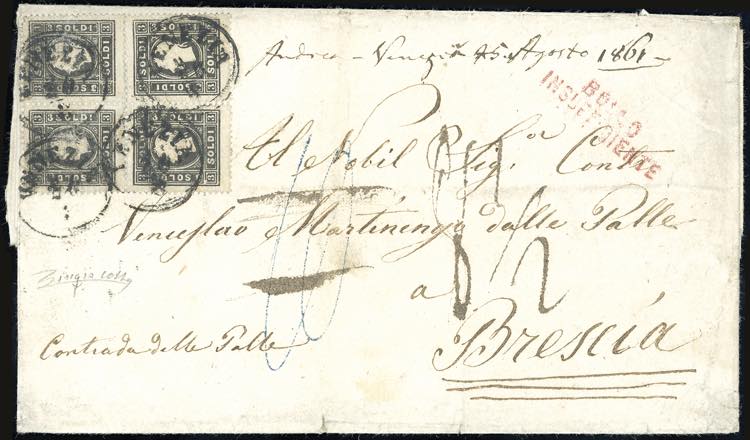 3 SOLDI 3
3 SOLDI 3
3 SOLDI 3
3 SOLDI 3
VENEZIA
VENEZIA
VENEZIA
VENEZIA
Andrea - Venezia 15 Agosto 1861
BOLLO
INSUFFICIENTE
Al Nobil Sig.or Conte
Venceslao Martinengo dalle Palle
a
Brescia
Contrada delle Palle
10